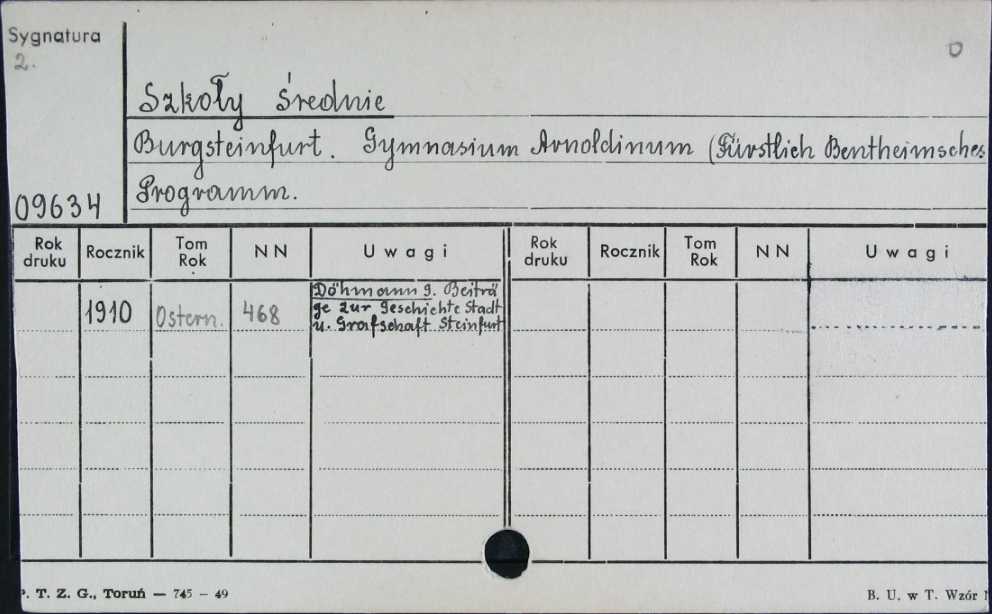 Sygnatura
2.
Szkoły średnie
Burgsteinfurt. Gymnasium Arnoldinum (Fürstlich Bentheimsches
Programm.
09634
Rok druku Rocznik Tom Rok NN Uwagi Rok druku Rocznik Tom Rok NN Uwagi
1910 Ostern. 468 Döhmann g. Beiträ
ge zur Geschichte Stadt
u. Grafschaft Steinfurt
P. T. Z. G., Toruń — 745 – 49
B. U. w T. Wzór